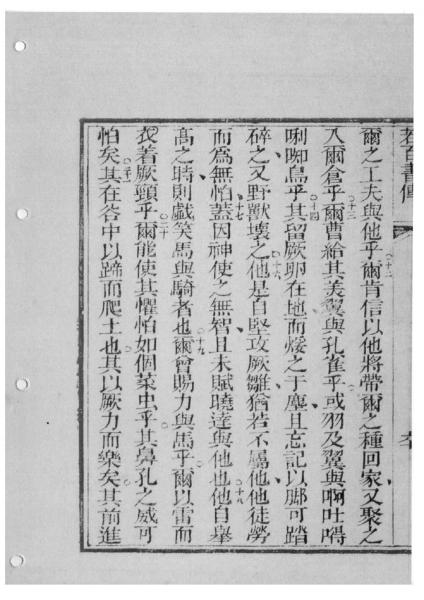 爾之工夫與他乎爾肯信以他將帶爾之種回家又聚之
入爾倉乎爾曹給其美翼與孔雀乎或羽及翼與啊吐嘚
唎啣鳥乎其留厥卵在地而煖之于塵且忘記以脚可踏
碎之又野獸壞之他是自堅攻厥雛猶若不屬他他徒勞
而爲無怕蓋因神使之無智且未賦曉達與他也他自舉
高之時則戲笑馬與騎者也爾曾賜力與馬乎爾以雷而
衣著厥頸乎爾能使其懼怕如個菜虫乎其鼻孔之威可
怕矣其在谷中以蹄而爬土也其以厥力而樂矣其前進